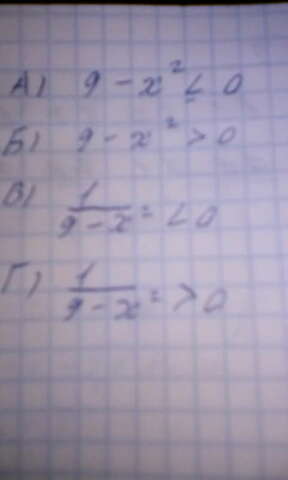 А) 9 - x² ≤ 0
Б) 9 - x² > 0
В) 1/(9 - x) = < 0
Г) 1/(9 - x) = > 0